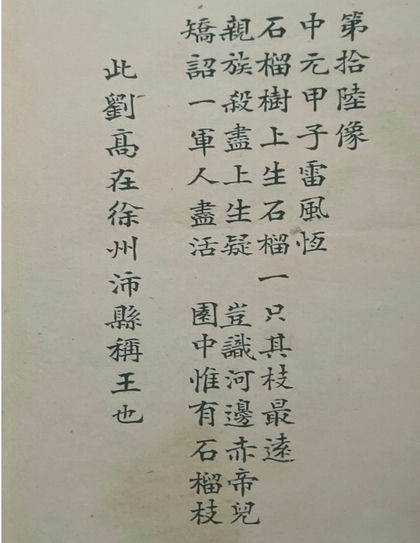 第拾陸像
中元甲子雷風恆
石榴樹上生石榴一只其枝最遠
親族殺盡上生疑　豈識河邊赤帝兒
矯詔一軍人盡活　園中惟有石榴枝
此劉高在徐州沛縣稱王也